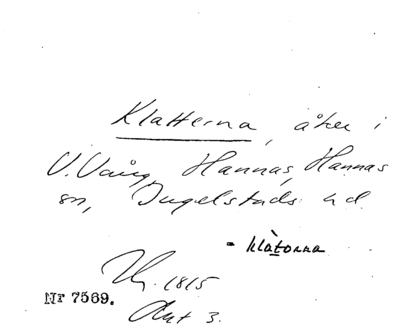 Klatterna, åker i
V. Vång, Hannas, Hannas
sn, Ingelstads hd.
- klàtorna
1815
Nr 7569.
Akt 3.